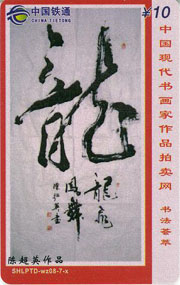 中国铁通
CHINA TIETONG
¥10
中国现代书画家作品拍卖网 书法荟萃
龍
龍飛
鳳舞
陈超英作品
SHLPTD-wz08-7-x